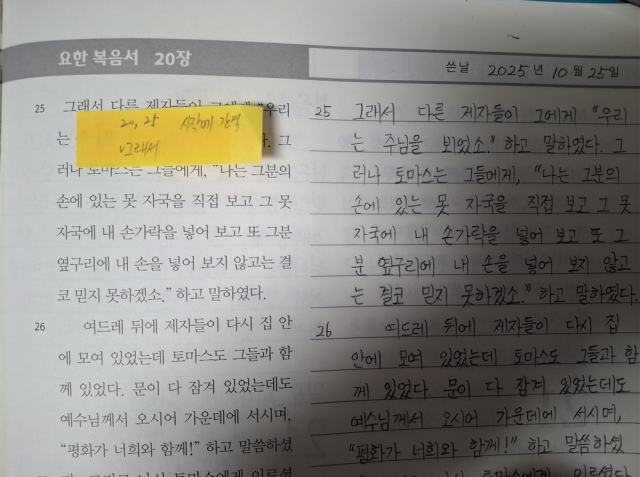 요한 복음서 20장
쓴날 2025년 10월 25일
25 그래서 다른 제자들이 그에게 “우리
는
20, 25 시작에 간격
그래서
다. 그
러나 토마스는 그들에게, “나는 그분의
손에 있는 못 자국을 직접 보고 그 못
자국에 내 손가락을 넣어 보고 또 그분
옆구리에 내 손을 넣어 보지 않고는 결
코 믿지 못하겠소.” 하고 말하였다.
26 여드레 뒤에 제자들이 다시 집 안
에 모여 있었는데 토마스도 그들과 함
께 있었다. 문이 다 잠겨 있었는데도
예수님께서 오시어 가운데에 서시며,
“평화가 너희와 함께!” 하고 말씀하셨
25 그래서 다른 제자들이 그에게 “우리
는 주님을 뵈었소.” 하고 말하였다. 그
러나 토마스는 그들에게, “나는 그분의
손에 있는 못 자국을 직접 보고 그 못
자국에 내 손가락을 넣어 보고 또 그
분 옆구리에 내 손을 넣어 보지 않고
는 결코 믿지 못하겠소.” 하고 말하였다.
26 여드레 뒤에 제자들이 다시 집
안에 모여 있었는데 토마스도 그들과 함
께 있었다. 문이 다 잠겨 있었는데도
예수님께서 오시어 가운데에 서시며,
“평화가 너희와 함께!” 하고 말씀하셨